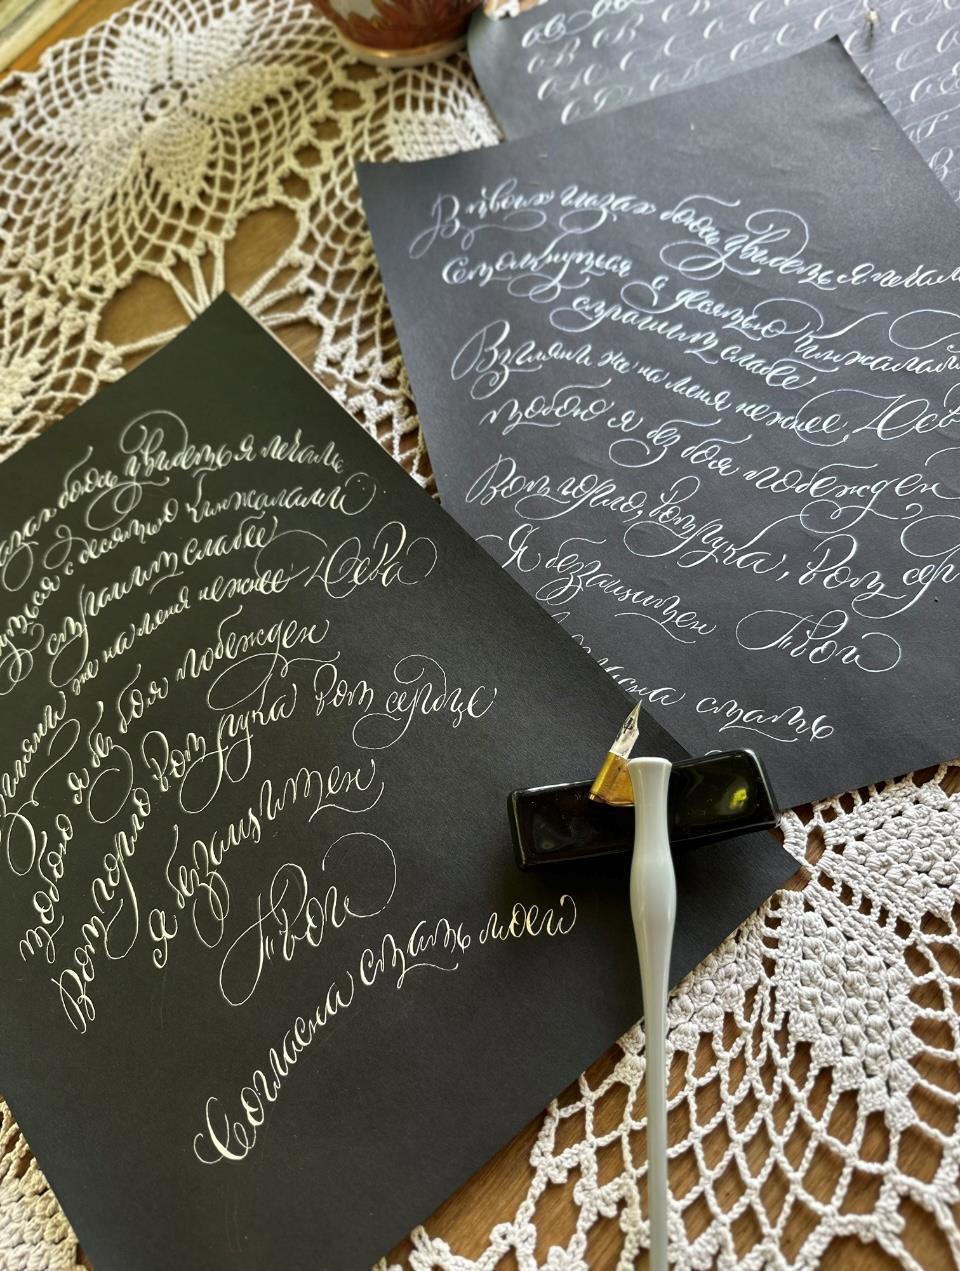 В твоих глазах боюсь увидеть я печаль
Столкнуться с десятью кинжалами
страшит слабее
Взгляни же на меня нежнее Дева
тобою я без боя побежден
Вот горло, вот рука, вот сер
Я беззащитен
Твой
сна стать
глазах боюсь увидеть я печаль
уться с десятью кинжалами
страшит слабее
же на меня нежнее Дева
тобою я без боя побежден
Вот горло вот рука вот сердце
я беззащитен
Твой
Согласна стать моей